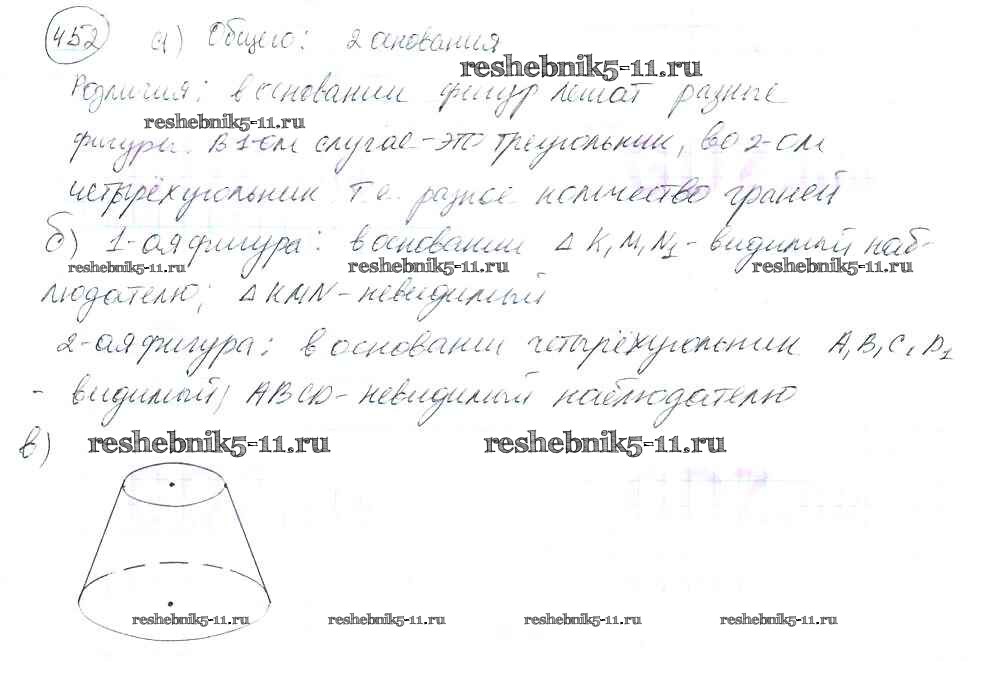 452 а) Общего: 2 основания
reshebnik5-11.ru
Различия: в основании фигур лежат разные
reshebnik5-11.ru
фигуры. В 1-ом случае - это треугольник, во 2-ом
четырёхугольник т.е. разное количество граней
б) 1-ая фигура: в основании Δ K₁M₁N₁ - видимый наб-
reshebnik5-11.ru reshebnik5-11.ru reshebnik5-11.ru
людателю; Δ KMN - невидимый
2-ая фигура: в основании четырёхугольник A₁B₁C₁D₁
- видимый, ABCD - невидимый наблюдателю
в) reshebnik5-11.ru reshebnik5-11.ru
reshebnik5-11.ru reshebnik5-11.ru reshebnik5-11.ru reshebnik5-11.ru